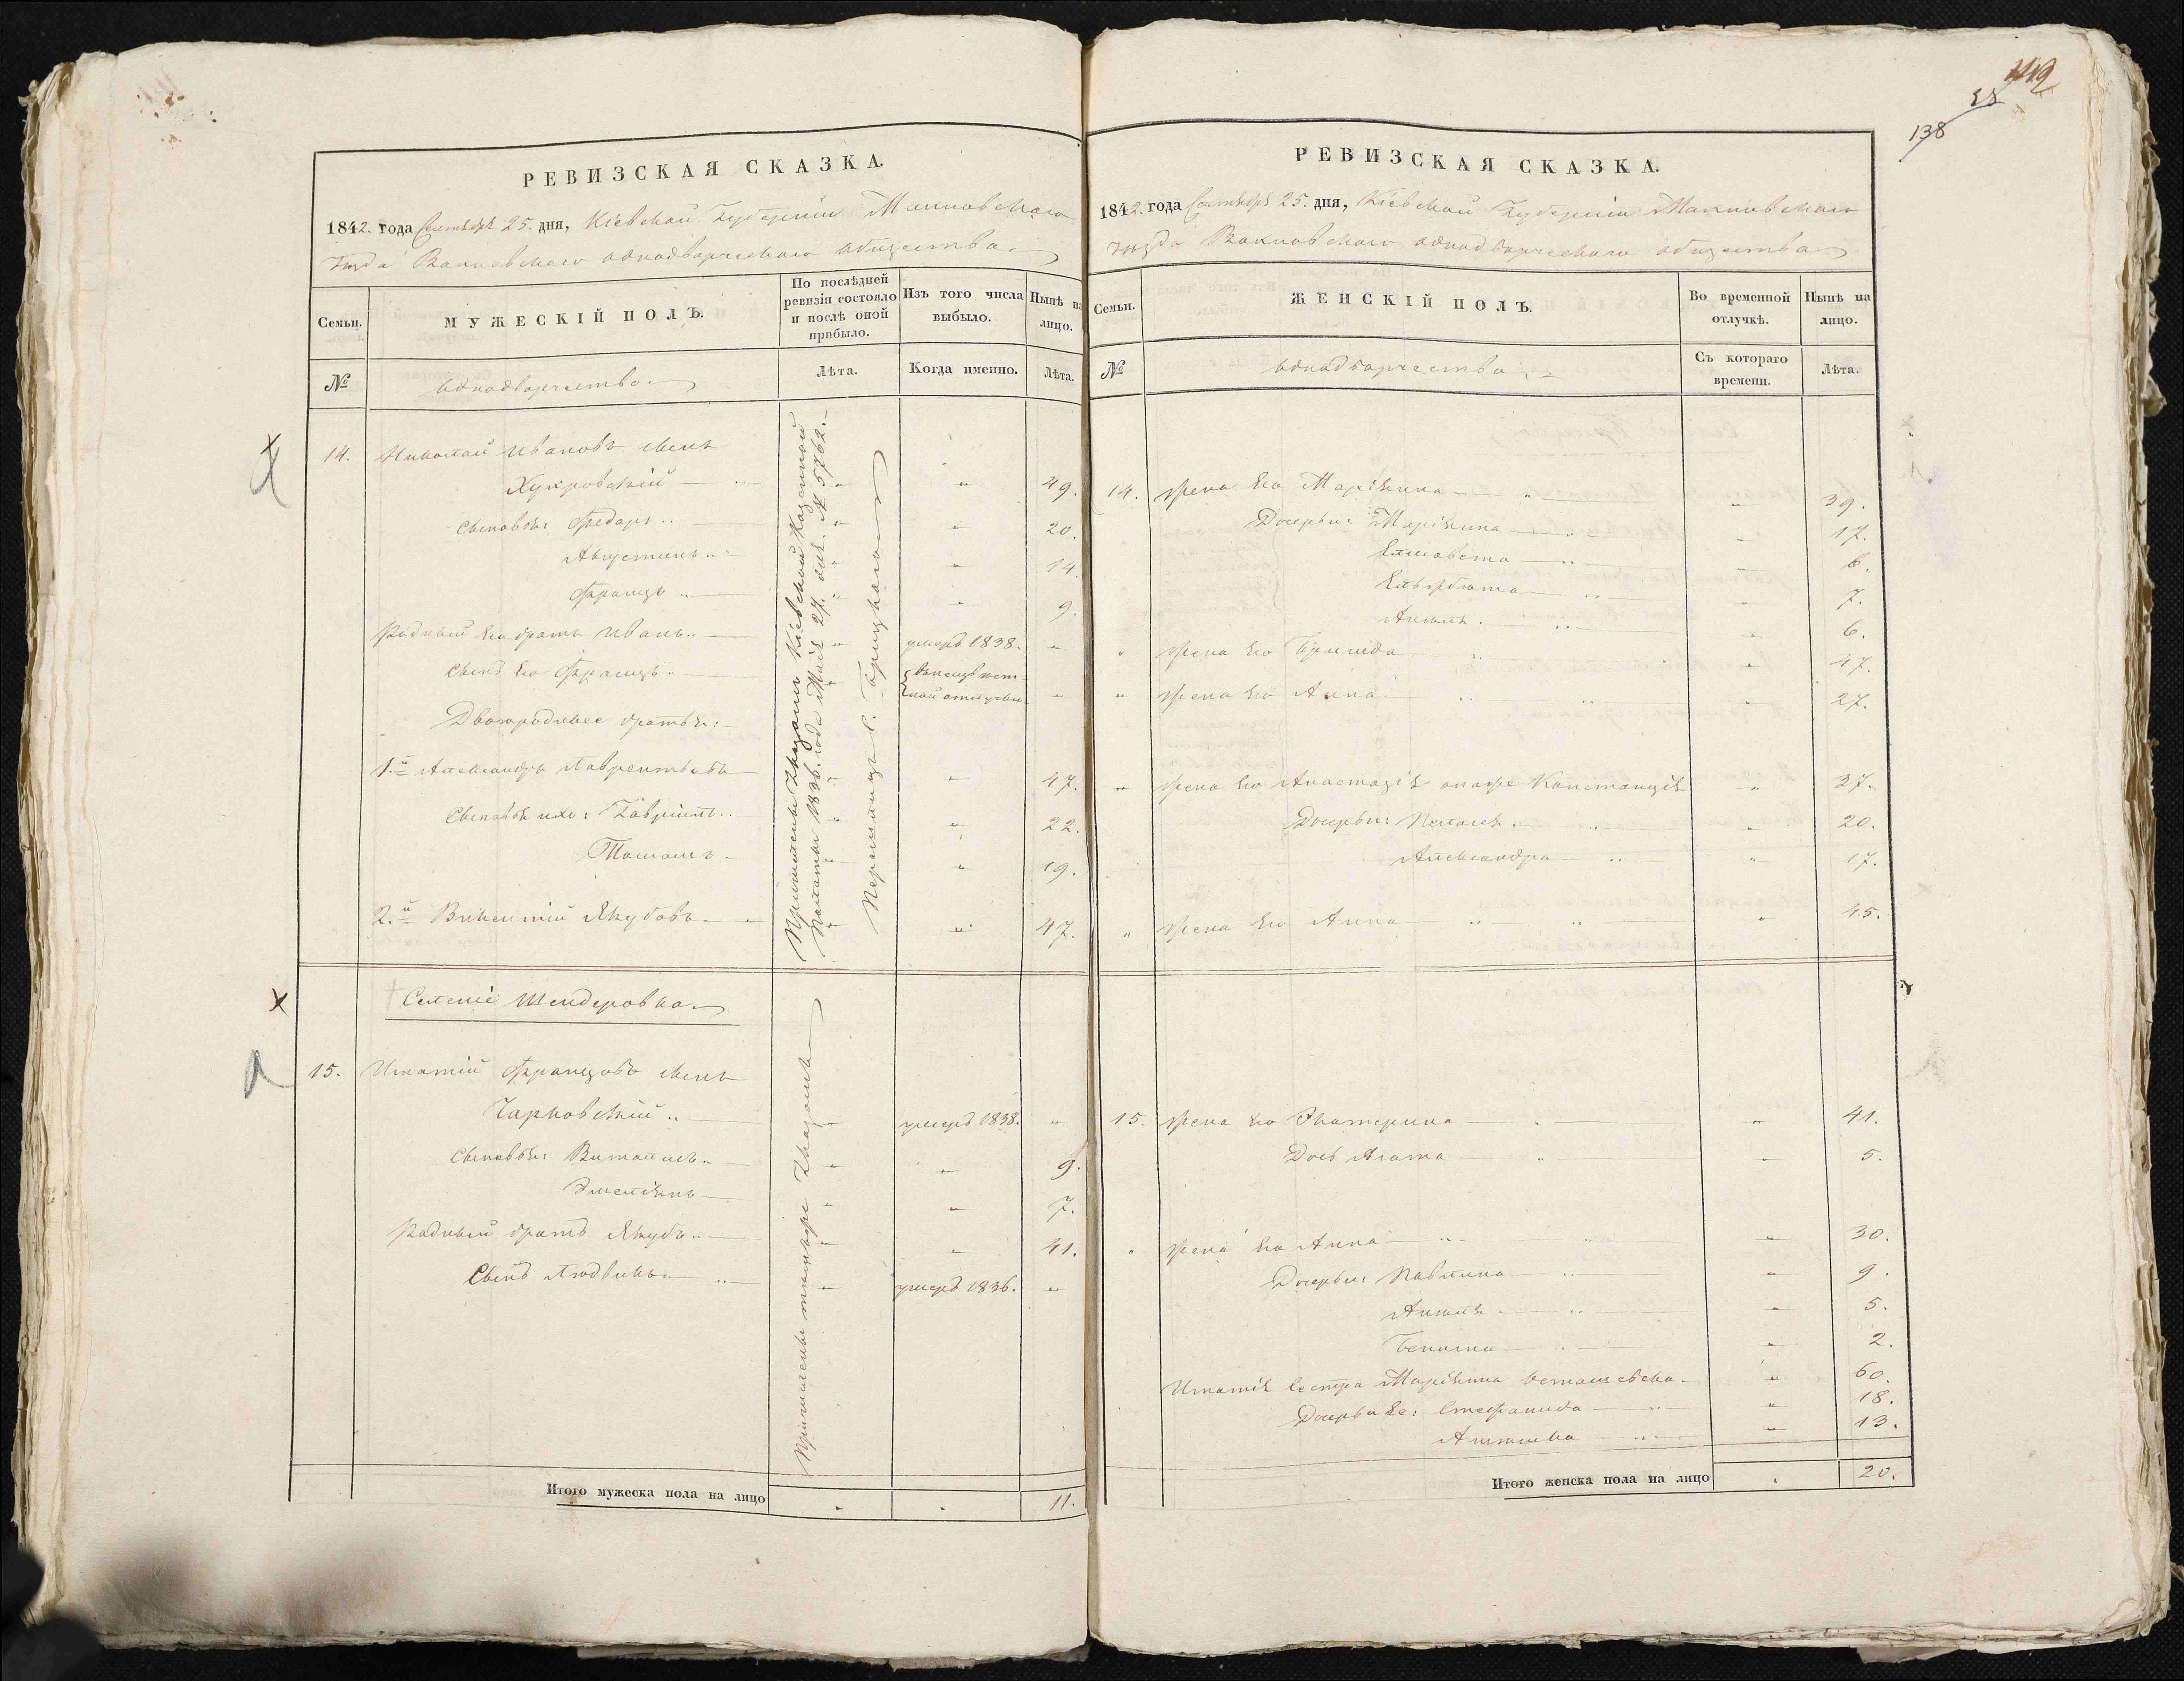 РЕВИЗСКАЯ СКАЗКА.
1842. года Сентября 25. дня, Кіевской Губерніи Махновскаго
уезда однодворческаго общества
Семьи.
МУЖЕСКІЙ ПОЛЪ.
По послѣдней ревизіи состояло и послѣ оной прибыло.
Изъ того числа выбыло.
Нынѣ на лицо.
№
однодворчества
Лѣта.
Когда именно.
Лѣта.
Причислены Указомъ Кіевской Казенной
Палаты 1836. года Маія 27. дня № 5762.
14. Николай Ивановъ сынъ
49.
сыновья: Федоръ 20.
Августинъ 14.
Францъ 9.
Родный его братъ Иванъ умеръ 1838.
Сынъ его Францъ
Двоюродные братья:
1.й Александръ Лаврентьевъ 47.
Сыновья ихъ: Гавріилъ 22.
Томашъ 19.
2.й Викентій Якубовъ 47.
Селеніе Шендеровка
15. Игнатій Францовъ сынъ
Чарковскій умеръ 1838.
Сыновья: Виталисъ 9.
Эмеліянъ 7.
Родный братъ Якубъ 41.
Сынъ Людвикъ умеръ 1836.
Причислены тѣмъ же Указомъ
Итого мужеска пола на лицо 11.
119
28
138
РЕВИЗСКАЯ СКАЗКА.
1842. года Сентября 25. дня, Кіевской Губерніи Махновскаго
уезда однодворческаго общества
Семьи.
ЖЕНСКІЙ ПОЛЪ.
Во временной отлучкѣ.
Нынѣ на лицо.
№
однодворчества
Съ котораго времени.
Лѣта.
14. Жена его Маріянна 39.
Дочери: Маріянна 17.
Елисавета 8.
Ельжбета 7.
Анеля 6.
Жена его Бригида 47.
Жена его Анна 27.
Жена его Анастазія онаже Констанція 37.
Дочери: Пелагея 20.
Александра 17.
Жена его Анна 45.
15. Жена его Екатерина 41.
Дочь Агата 5.
Жена его Анна 30.
Дочери: Павлина 9.
Анеля 5.
2.
Игнатія сестра Маріянна 60.
Дочери ее: Стефанида 18.
13.
Итого женска пола на лицо 20.